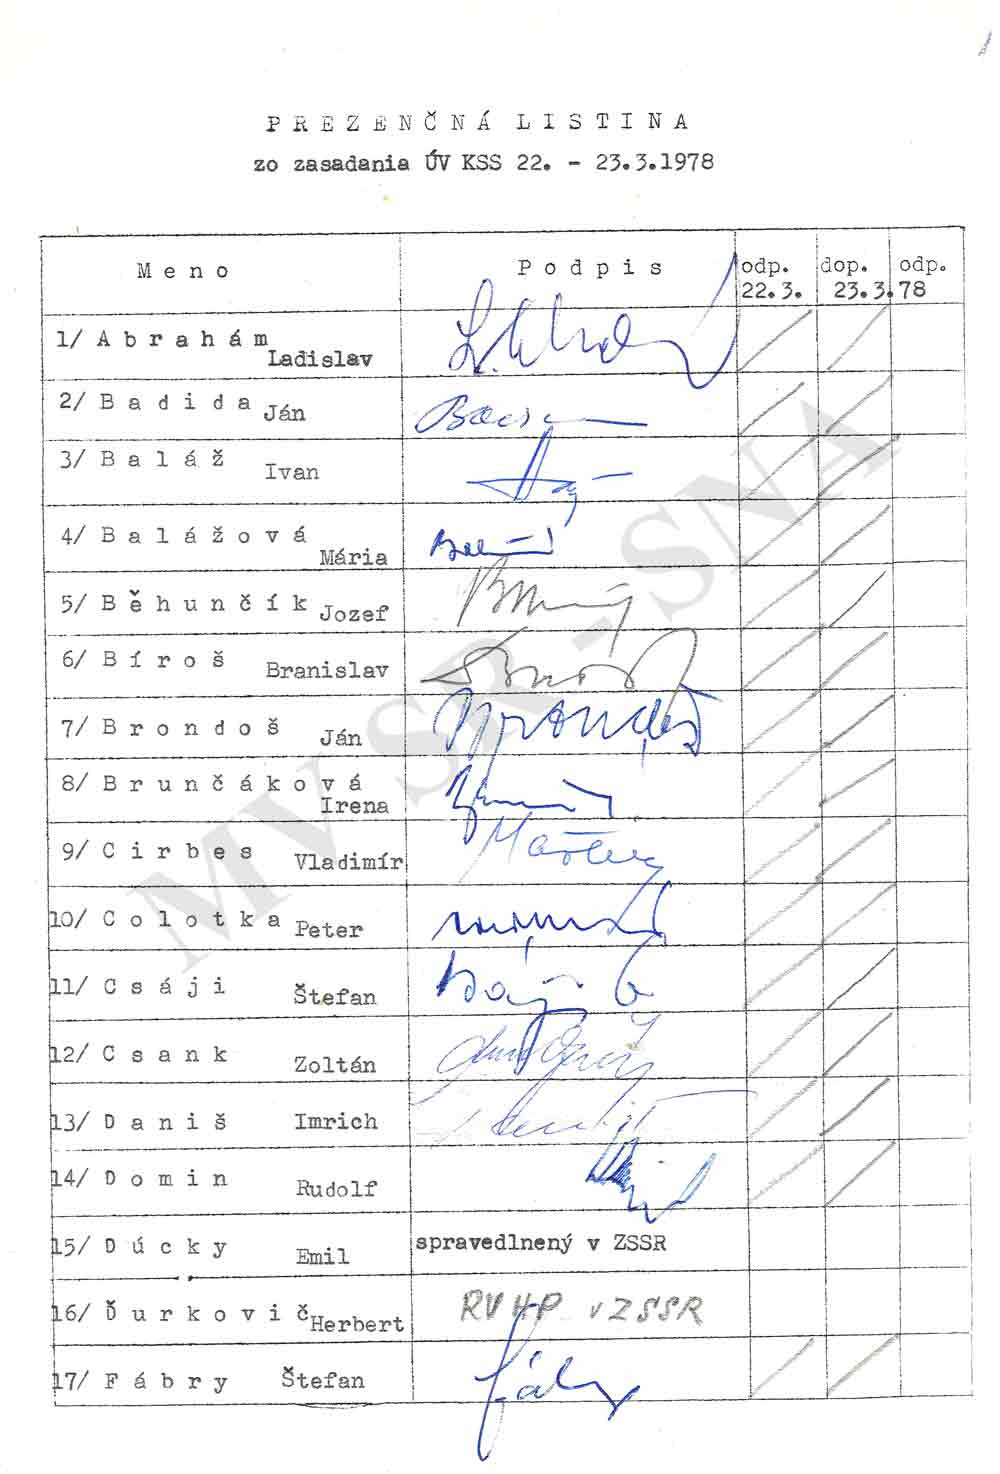 PREZENČNÁ LISTINA
zo zasadania ÚV KSS 22. - 23.3.1978
Meno Podpis odp. dop. odp.
22.3. 23.3.78
1/ Abrahám
Ladislav
2/ Badida Ján
3/ Baláž Ivan
4/ Balážová
Mária
5/ Běhunčík Jozef
6/ Bíroš Branislav
7/ Brondoš Ján
8/ Brunčáková
Irena
9/ Cirbes Vladimír
10/ Colotka Peter
11/ Csáji Štefan
12/ Csank Zoltán
13/ Daniš Imrich
14/ Domin Rudolf
15/ Dúcky Emil spravedlnený v ZSSR
16/ Ďurkovič Herbert RVHP v ZSSR
17/ Fábry Štefan
MV SR - SNA